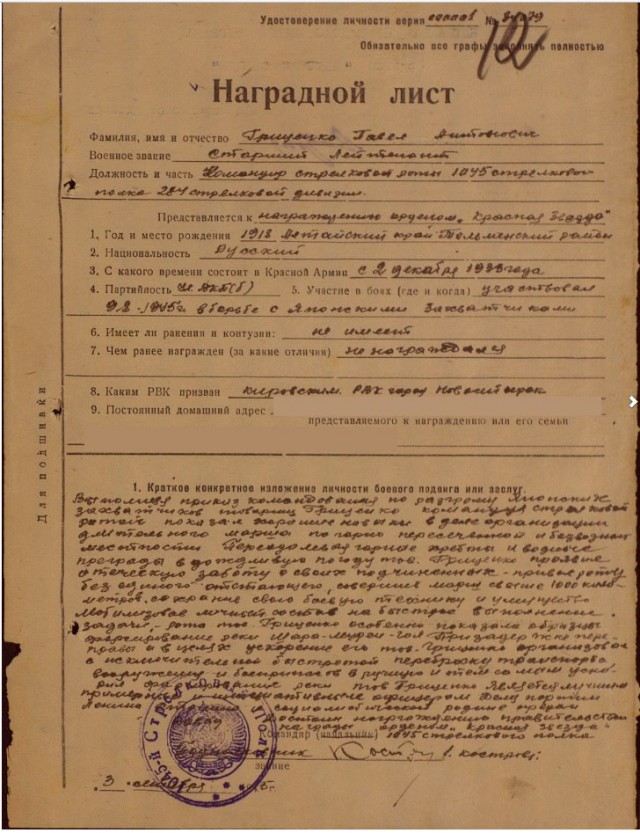 Удостоверение личности серия №
Обязательно все графы заполнять полностью
Наградной лист
Фамилия, имя и отчество Гриценко Павел Антонович
Военное звание Старший лейтенант
Должность и часть Командир стрелковой роты 1045 стрелкового
полка 284 стрелковой дивизии.
Представляется к награждению орденом „Красная Звезда"
1. Год и место рождения 1918 Алтайский край Тальменский район
2. Национальность Русский
3. С какого времени состоит в Красной Армии с 2 декабря 1939 года
4. Партийность ВКП(б) 5. Участие в боях (где и когда) участвовал
9.8-1945г в борьбе с Японскими Захватчиками
6. Имеет ли ранения и контузии: не имеет
7. Чем ранее награжден (за какие отличия) не награждался
8. Каким РВК призван Кировским РВК город Новосибирск
9. Постоянный домашний адрес
представляемого к награждению или его семьи
Для подшивки
1. Краткое конкретное изложение личности боевого подвига или заслуг.
Выполняя приказ командования по разгрому Японских
захватчиков товарищ Гриценко командуя стрелковой
ротой показал хорошие навыки в деле организации
длительного марша по горно пересеченной и безводной
местности Переодолевая горные хребты и водные
преграды в дождливую погоду тов. Гриценко проявил
отеческую заботу о своих подчиненных - привел роту
без единого отстающего, совершив марш свыше 1000 кило-
метров, сохранив свою боевую технику и имущество
Мобилизовав личный состав на быстрое выполнение
задачи, - рота тов. Гриценко особенно показала образцы
форсирование реки Шара-Мурен-Гол При задержке пере-
правы и в целях ускорение его тов. Гриценко организовал
с исключительной быстротой переброску транспорта
вооружения и боеприпасов в ручную и тем самым уско-
рил форсирование реки тов Гриценко Является лучшим
примерным и офицером Делу партии
Ленина социалистической родине предан
Достоин награждению правительств
награды орденом „Красная Звезда"
Командир (начальник) 1045 стрелкового полка
/. Костров/.
звание
3 сентября 5 г.
1045-й Стрелковый Полк